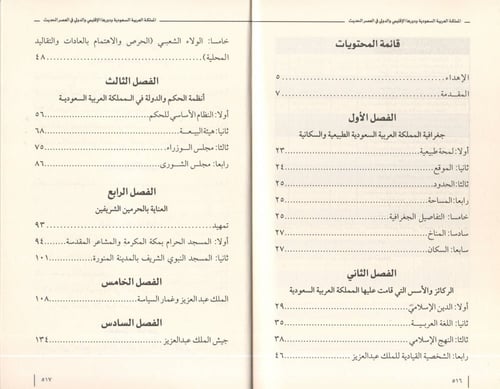 المملكة العربية السعودية ودورها الإقليمي والدولي في العصر الحديث
قائمة المحتويات
الإهداء ٥
المقدمة ٧
الفصل الأول
جغرافية المملكة العربية السعودية الطبيعية والسكانية
أولا: لمحة طبيعية ٢٣
ثانيا: الموقع ٢٤
ثالثا: الحدود ٢٥
رابعا: المساحة ٢٥
خامسا: التفاصيل الجغرافية ٢٥
سادسا: المناخ ٢٧
سابعا: السكان ٢٧
الفصل الثاني
الركائز والأسس التي قامت عليها المملكة العربية السعودية
أولا: الدين الإسلامي ٢٩
ثانيا: اللغة العربية ٣٥
ثالثا: النهج الإسلامي ٣٨
رابعا: الشخصية القيادية للملك عبدالعزيز ٤٦
٥١٦
المملكة العربية السعودية ودورها الإقليمي والدولي في العصر الحديث
خامسا: الولاء الشعبي (الحرص والاهتمام بالعادات والتقاليد
المحلية) ٤٨
الفصل الثالث
أنظمة الحكم والدولة في المملكة العربية السعودية
أولا: النظام الأساسي للحكم ٥٦
ثانيا: هيئة البيعة ٦٨
ثالثا: مجلس الوزراء ٧٥
رابعا: مجلس الشورى ٨٦
الفصل الرابع
العناية بالحرمين الشريفين
تمهيد ٩٣
أولا: المسجد الحرام بمكة المكرمة والمشاعر المقدسة ٩٤
ثانيا: المسجد النبوي الشريف بالمدينة المنورة ١٠١
الفصل الخامس
الملك عبدالعزيز وغمار السياسة ١٠٨
الفصل السادس
جيش الملك عبدالعزيز ١٣٤
٥١٧